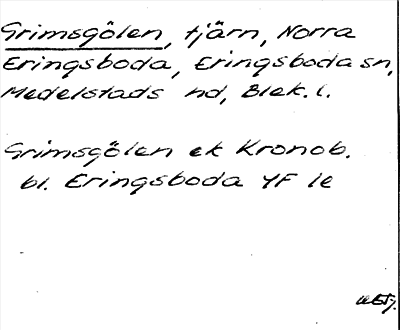 Grimsgölen, tjärn, Norra
Eringsboda, Eringsboda sn,
Medelstads hd, Blek. l.
Grimsgölen ek Kronob.
bl. Eringsboda YF 1e